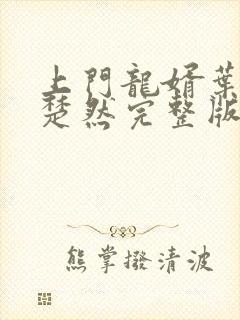 上門龍婿葉
楚然完整版
熊掌撥清波